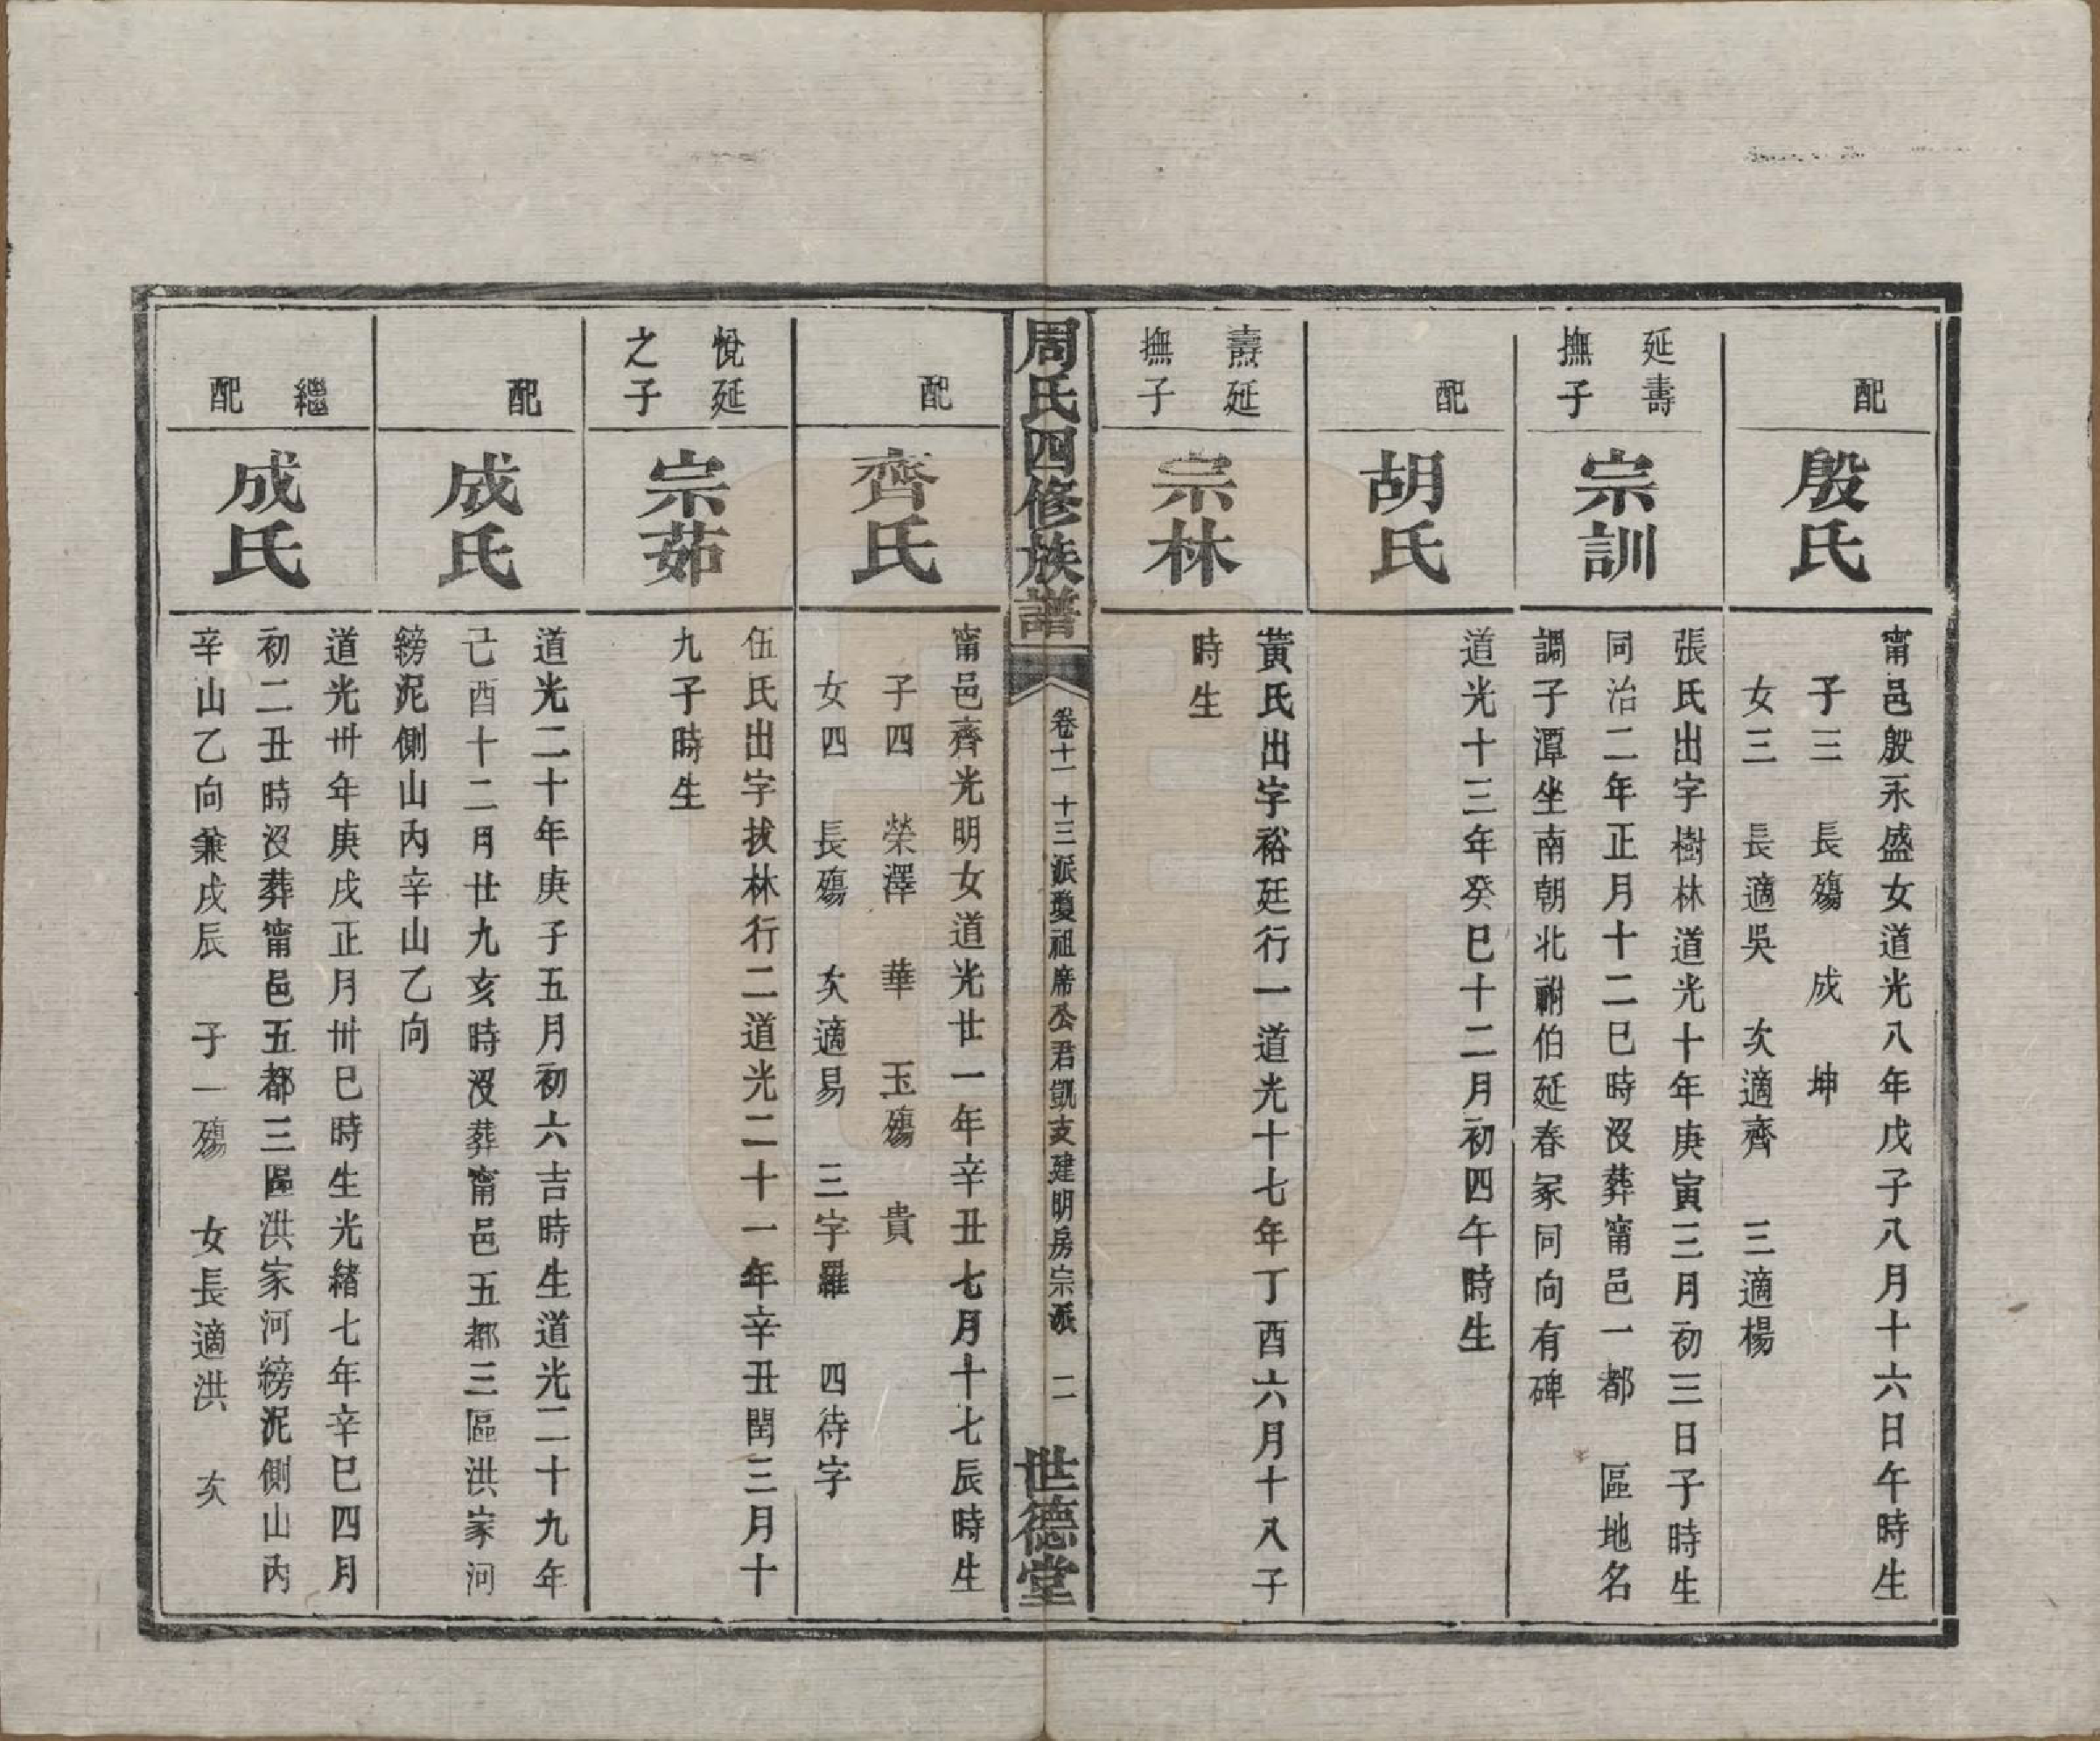 配
殷氏
甯邑殷永盛女道光八年戊子八月十六日午時生
子三 長殤 成 坤
女三 長適吳 次適齊 三適楊
延壽
撫子
宗訓
張氏出字樹林道光十年庚寅三月初三日子時生
同治二年正月十二巳時沒葬甯邑一都 區地名
調子潭坐南朝北祔伯延春冢同向有碑
配
胡氏
道光十三年癸巳十二月初四午時生
燾延
撫子
宗林
黃氏出字裕廷行一道光十七年丁酉六月十八子
時生
周氏四修族譜
卷十一 十三派瓊祖席公君凱支建明房宗派 二
世德堂
配
齊氏
甯邑齊光明女道光廿一年辛丑七月十七辰時生
子四 榮澤 華 玉殤 貴
女四 長殤 次適易 三字羅 四待字
悅延
之子
宗茹
伍氏出字拔林行二道光二十一年辛丑閏三月十
九子時生
配
成氏
道光二十年庚子五月初六吉時生道光二十九年
己酉十二月廿九亥時沒葬甯邑五都三區洪家河
縍泥側山內辛山乙向
繼
配
成氏
道光卅年庚戌正月卅巳時生光緒七年辛巳四月
初二丑時沒葬甯邑五都三區洪家河縍泥側山內
辛山乙向兼戌辰 子一殤 女長適洪 次